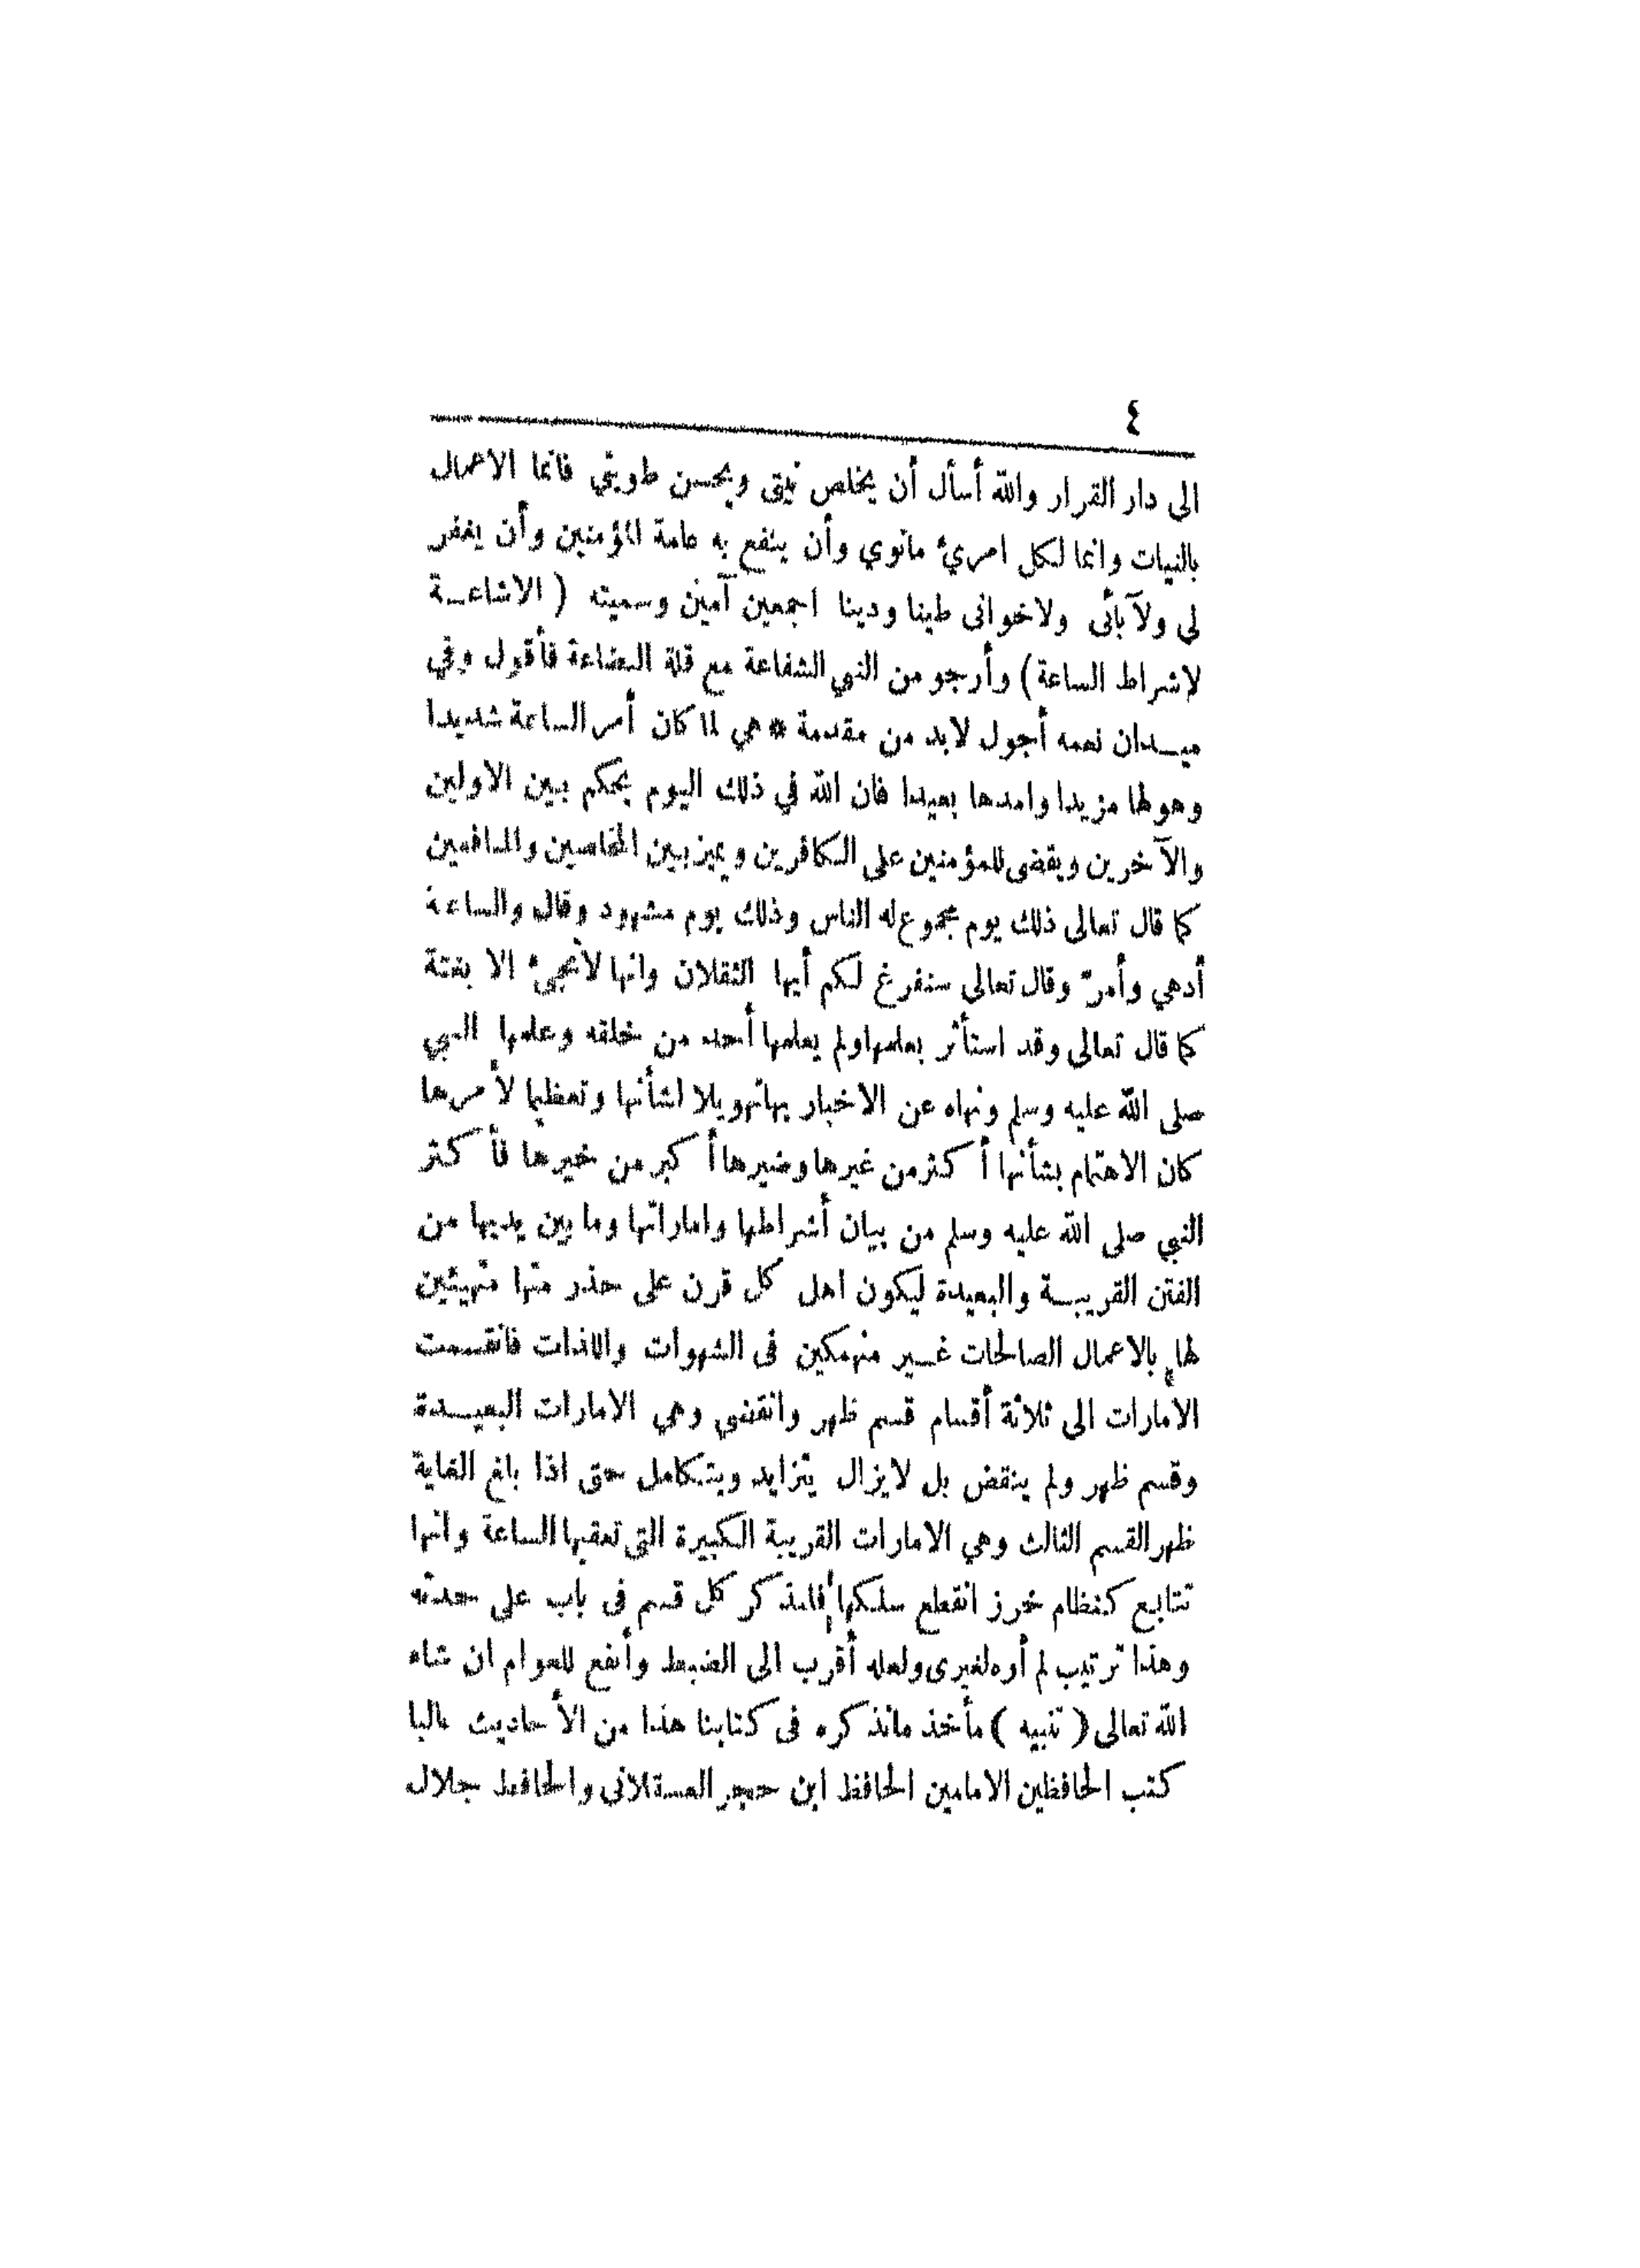 ٤
الى دار القرار والله أسأل أن يخلص نيتى ويحسن طويتي فانما الاعمال
بالنيات وانما لكل امريء مانوي وأن ينفع به عامة المؤمنين وأن يغفر
لى ولآبائى ولاخوانى طينا ودينا اجمعين آمين وسميته ( الاشاعــة
لاشراط الساعة) وأرجو من النبي الشفاعة مع قلة البضاعة فأقول وفي
ميــدان نعمه أجول لابد من مقدمة * هي لما كان أمر الساعة شديدا
وهولها مزيدا وامدها بعيدا فان الله في ذلك اليوم يحكم بين الاولين
والآخرين ويقضى للمؤمنين على الكافرين ويميز بين المخلصين والمنافقين
كما قال تعالى ذلك يوم مجموع له الناس وذلك يوم مشهود وقال والساعة
أدهي وأمرّ وقال تعالى سنفرغ لكم أيها الثقلان وانها لاتجيء الا بغتة
كما قال تعالى وقد استأثر بعلمها ولم يعلمها أحد من خلقه وعلمها النبي
صلى الله عليه وسلم ونهاه عن الاخبار بها تهويلا لشأنها وتعظيما لأمرها
كان الاهتمام بشأنها أكثر من غيرها وضيرها أكبر من خيرها فأكثر
النبي صلى الله عليه وسلم من بيان أشراطها واماراتها وما بين يديها من
الفتن القريبــة والبعيدة ليكون اهل كل قرن على حذر منها متهيئين
لها بالاعمال الصالحات غــير منهمكين فى الشهوات واللذات فانقسمت
الأمارات الى ثلاثة أقسام قسم ظهر وانقضي وهي الامارات البعيــدة
وقسم ظهر ولم ينقض بل لايزال يتزايد ويتكامل حتى اذا بلغ الغاية
ظهر القسم الثالث وهي الامارات القريبة الكبيرة التى تعقبها الساعة وانها
تتابع كنظام خرز انقطع سلكها فلنذكر كل قسم فى باب على حدته
وهذا ترتيب لم أره لغيرى ولعله أقرب الى الضبط وأنفع للعوام ان شاء
الله تعالى ( تنبيه ) مأخذ مانذكره فى كتابنا هذا من الأحاديث غالبا
كتب الحافظين الامامين الحافظ ابن حجر العسقلانى والحافظ جلال